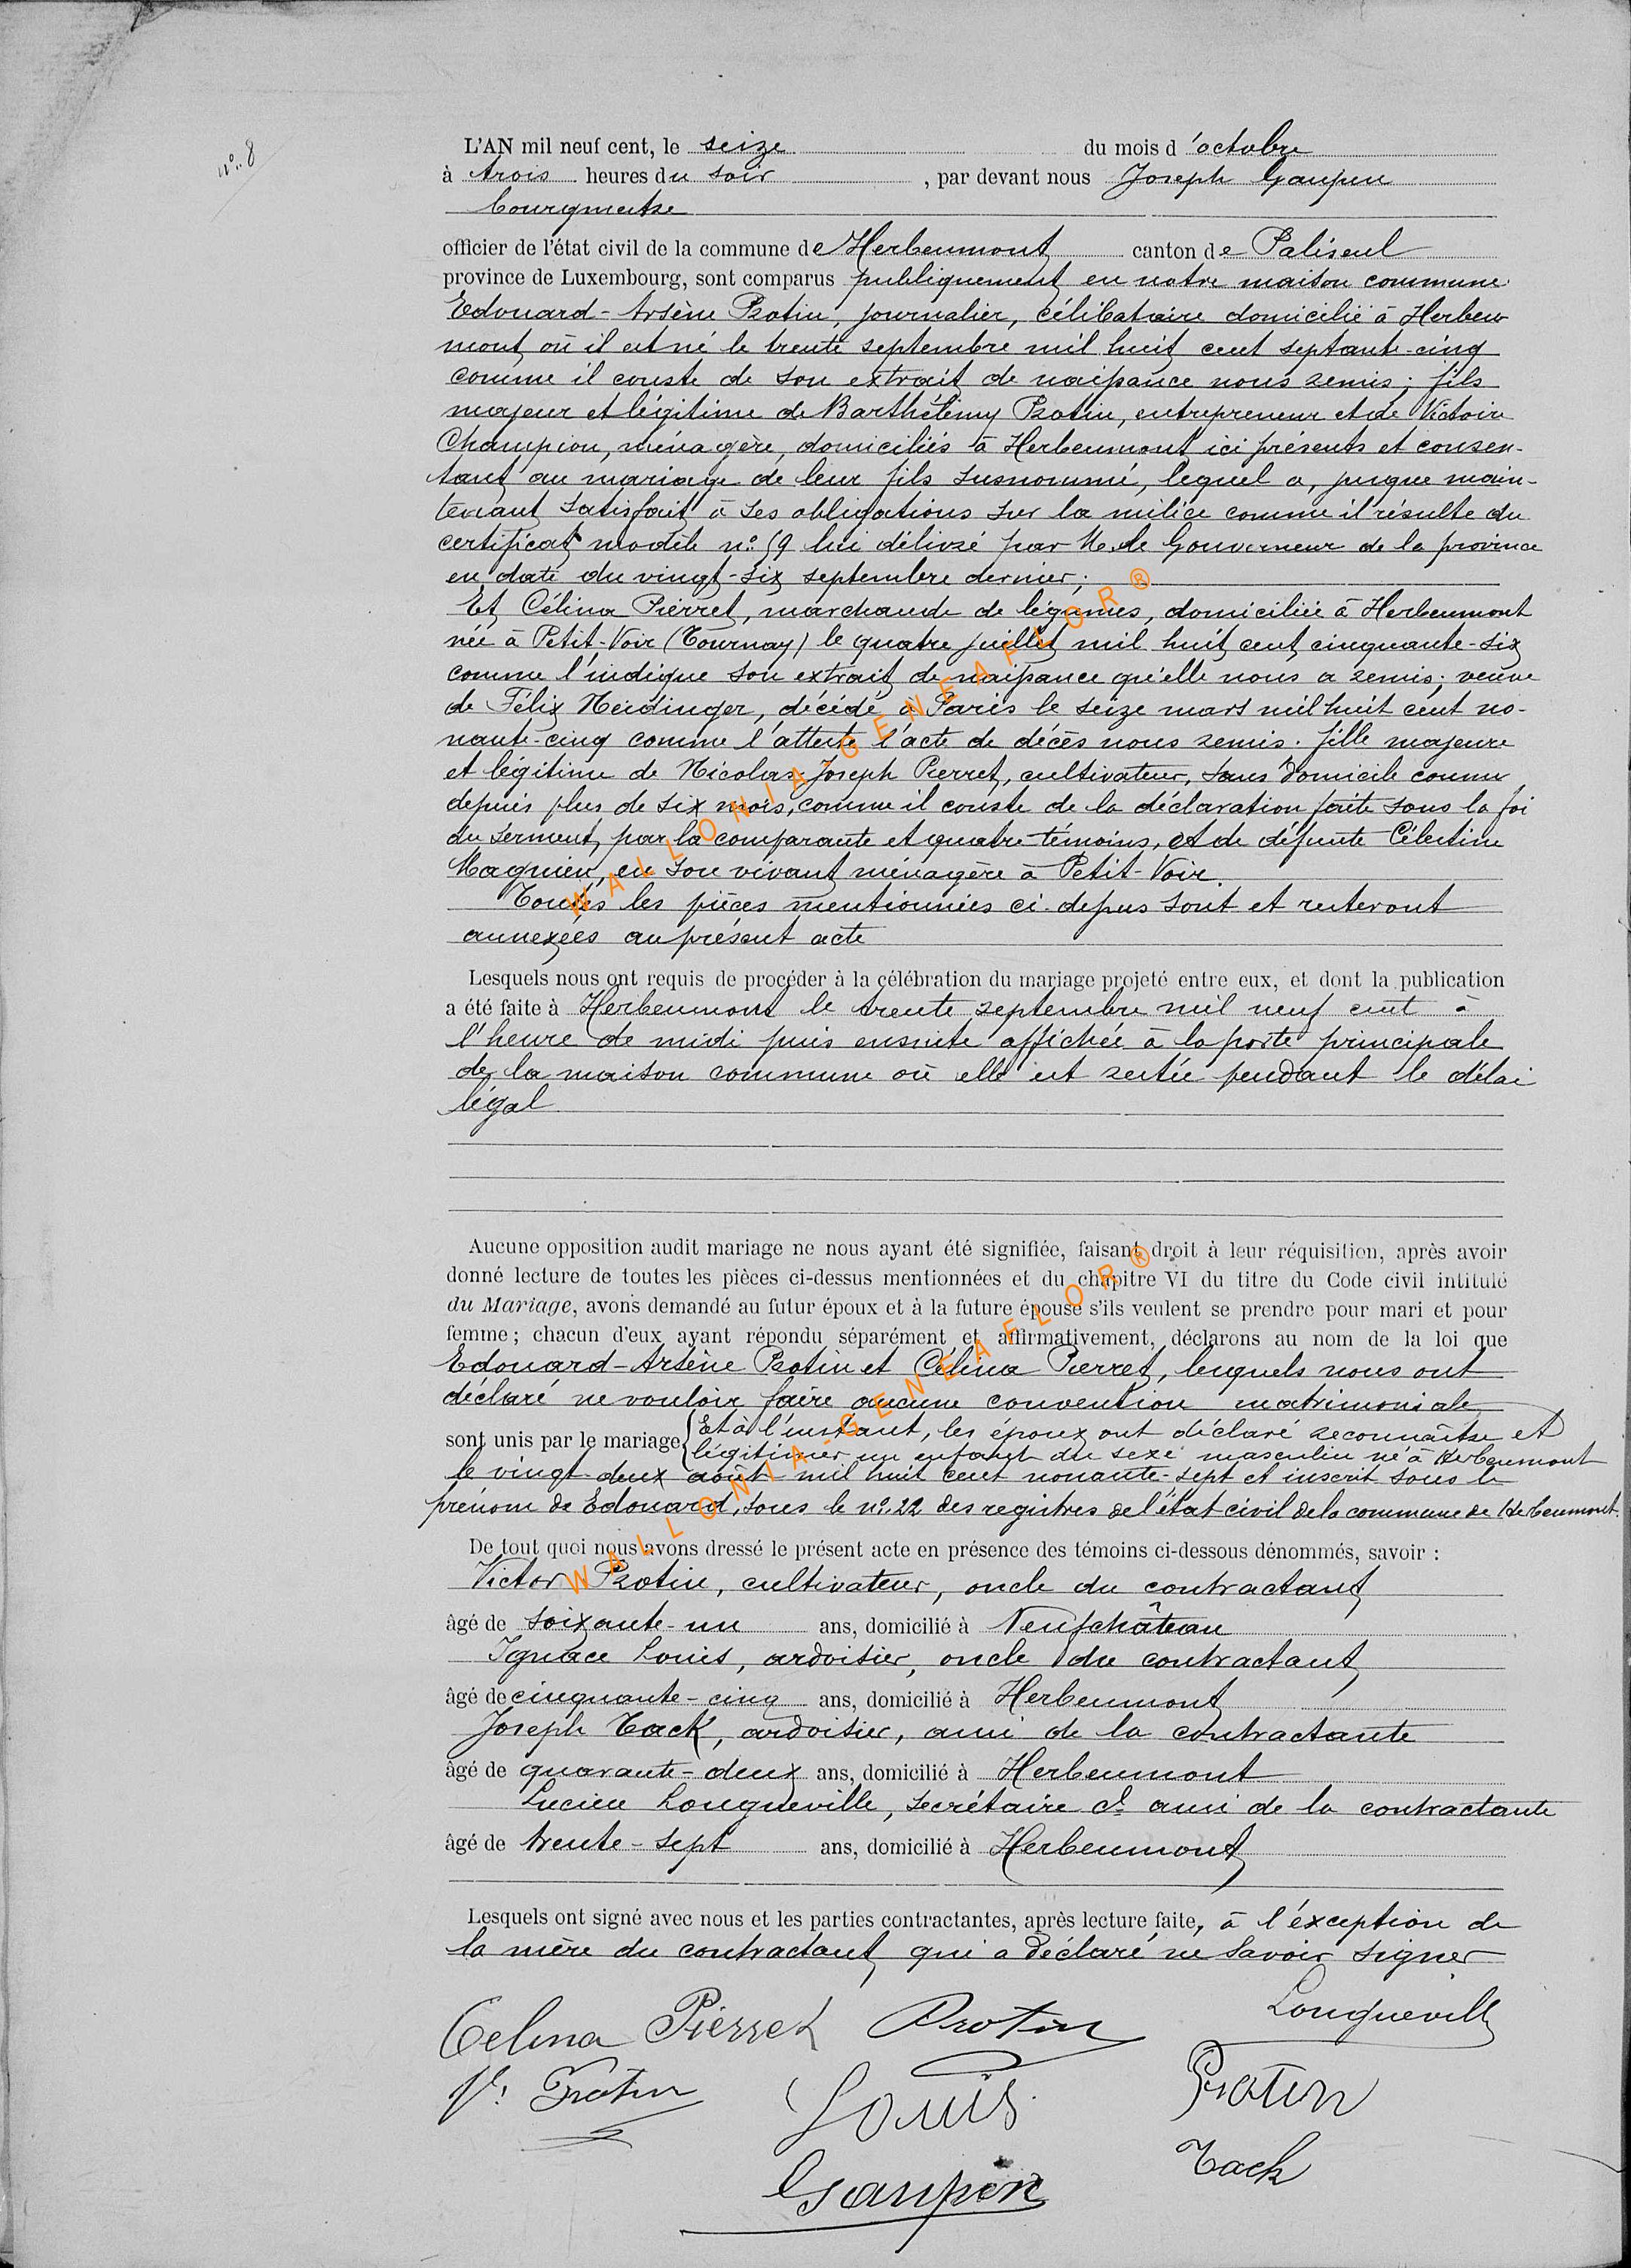 n° 8
L'AN mil neuf cent, le seize du mois d'octobre
à trois heures du soir, par devant nous Joseph Gaupin
bourgmestre
officier de l'état civil de la commune de Herbeumont canton de Paliseul
province de Luxembourg, sont comparus publiquement en notre maison commune
Edouard-Arsène Protin, journalier, célibataire domicilié à Herbeu
mont où il est né le trente septembre mil huit cent septante-cinq
comme il conste de son extrait de naissance nous remis; fils
majeur et légitime de Barthélémy Protin, entrepreneur et de Victoire
Champion, ménagère, domiciliés à Herbeumont ici présents et consen-
tant au mariage de leur fils susnommé, lequel a, jusque main-
tenant satisfait à ses obligations sur la milice comme il résulte du
certificat modèle n° 59 lui délivré par M. le Gouverneur de la province
en date du vingt-six septembre dernier;
Et Célina Pierret, marchande de légumes, domiciliée à Herbeumont
née à Petit-Voir (Tournay) le quatre juillet mil huit cent cinquante-six
comme l'indique son extrait de naissance qu'elle nous a remis; veuve
de Félix Neidinger, décédé à Paris le seize mars mil huit cent no-
nante-cinq comme l'atteste l'acte de décès nous remis. fille majeure
et légitime de Nicolas-Joseph Pierret, cultivateur, sans domicile connu
depuis plus de six mois, comme il conste de la déclaration faite sous la foi
du serment, par la comparante et quatre témoins, et de défunte Célestine
Magnien, en son vivant ménagère à Petit-Voir.
Toutes les pièces mentionnées ci-dessus sont et resteront
annexées au présent acte
Lesquels nous ont requis de procéder à la célébration du mariage projeté entre eux, et dont la publication
a été faite à Herbeumont le trente septembre mil neuf cent à
l'heure de midi puis ensuite affichée à la porte principale
de la maison commune où elle est restée pendant le délai
légal
Aucune opposition audit mariage ne nous ayant été signifiée, faisant droit à leur réquisition, après avoir
donné lecture de toutes les pièces ci-dessus mentionnées et du chapitre VI du titre du Code civil intitulé
du Mariage, avons demandé au futur époux et à la future épouse s'ils veulent se prendre pour mari et pour
femme; chacun d'eux ayant répondu séparément et affirmativement, déclarons au nom de la loi que
Edouard-Arsène Protin et Célina Pierret, lesquels nous ont
déclaré ne vouloir faire aucune convention matrimoniale
sont unis par le mariage Et à l'instant, les époux ont déclaré reconnaître et
légitimer un enfant du sexe masculin né à Herbeumont
le vingt-deux août mil huit cent nonante-sept et inscrit sous le
prénom de Edouard, sous le n° 22 des registres de l'état civil de la commune de Herbeumont.
De tout quoi nous avons dressé le présent acte en présence des témoins ci-dessous dénommés, savoir :
Victor Protin, cultivateur, oncle du contractant
âgé de soixante-un ans, domicilié à Neufchâteau
Ignace Louis, ardoisier, oncle du contractant
âgé de cinquante-cinq ans, domicilié à Herbeumont
Joseph Tack, ardoisier, ami de la contractante
âgé de quarante-deux ans, domicilié à Herbeumont
Lucien Longueville, secrétaire cl ami de la contractante
âgé de trente-sept ans, domicilié à Herbeumont
Lesquels ont signé avec nous et les parties contractantes, après lecture faite, à l'exception de
la mère du contractant qui a déclaré ne savoir signer
Celina Pierret Protin Longueville
V. Protin Louis Protin
Gaupin Tack
WALLONIA-GENEAFLOR®
WALLONIA-GENEAFLOR®